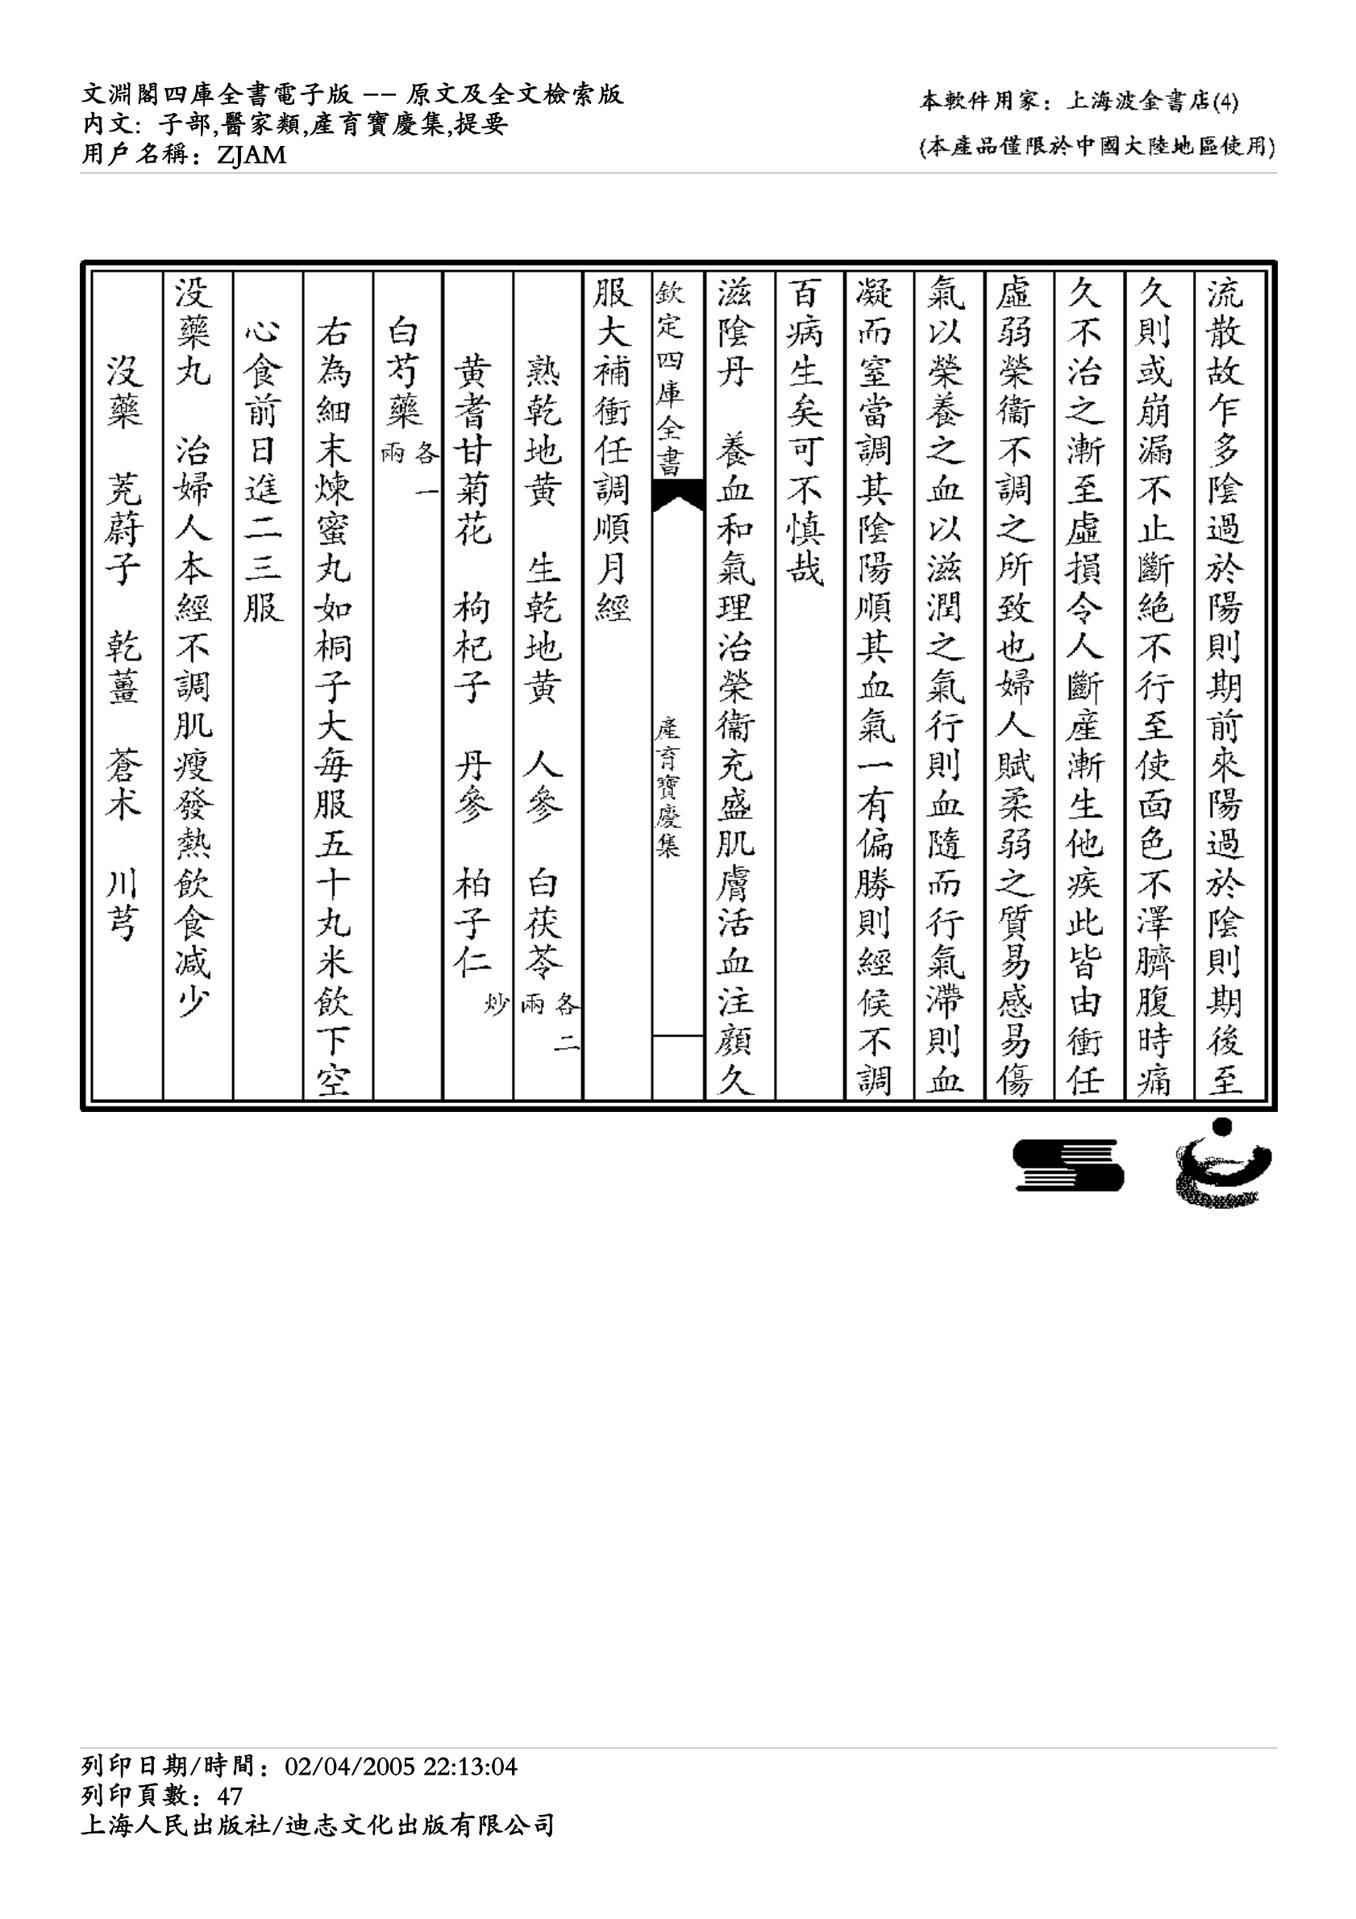 文淵閣四庫全書電子版 -- 原文及全文檢索版
内文：子部,醫家類,產育寶慶集,提要
用戶名稱：ZJAM
本軟件用家：上海波金書店(4)
(本產品僅限於中國大陸地區使用)
流散故乍多陰過於陽則期前來陽過於陰則期後至
久則或崩漏不止斷絶不行至使面色不澤臍腹時痛
久不治之漸至虛損令人斷産漸生他疾此皆由衝任
虛弱榮衞不調之所致也婦人賦柔弱之質易感易傷
氣以榮養之血以滋潤之氣行則血隨而行氣滯則血
凝而室當調其陰陽順其血氣一有偏勝則經候不調
百病生矣可不慎哉
滋陰丹　養血和氣理治榮衞充盛肌膚活血注顔久
欽定四庫全書
產育寶慶集
服大補衝任調順月經
熟乾地黄　生乾地黄　人參　白茯苓各二兩
黄耆甘菊花　枸杞子　丹參　柏子仁炒
白芍藥各一兩
右為細末煉蜜丸如桐子大每服五十丸米飲下空
心食前日進二三服
没藥丸　治婦人本經不調肌瘦發熱飲食减少
没藥　茺蔚子　乾薑　蒼术　川芎
列印日期/時間：02/04/2005 22:13:04
列印頁數：47
上海人民出版社/迪志文化出版有限公司